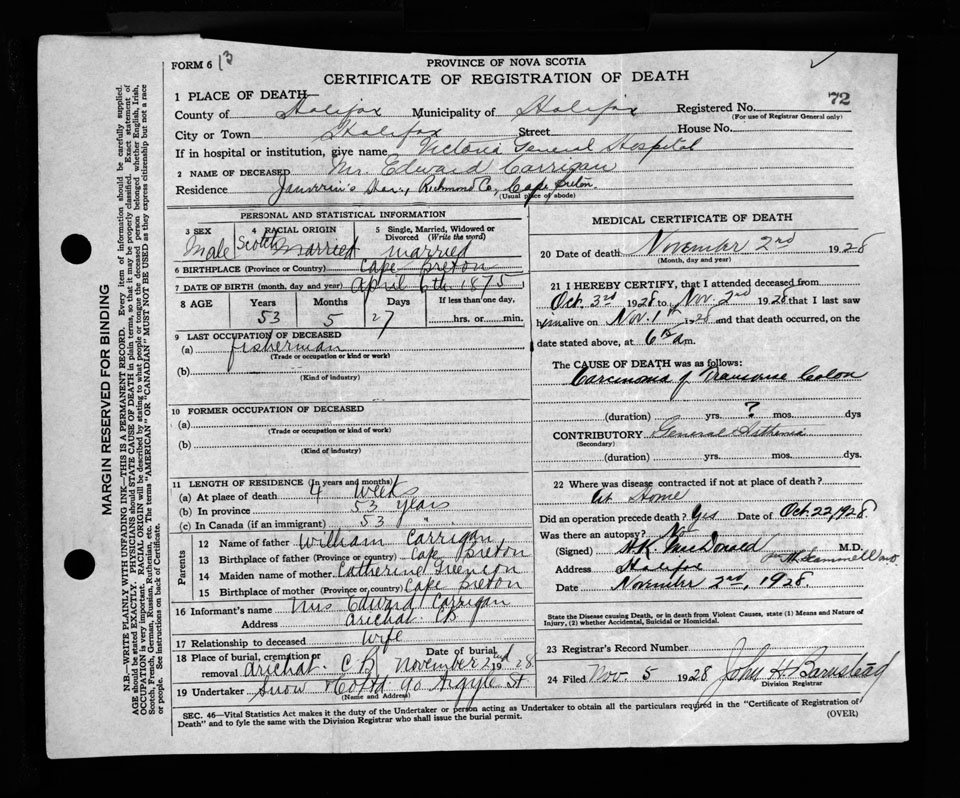 FORM 6 13
PROVINCE OF NOVA SCOTIA
CERTIFICATE OF REGISTRATION OF DEATH
72
1 PLACE OF DEATH
County of Halifax Municipality of Halifax Registered No.
(For use of Registrar General only)
City or Town Halifax Street House No.
If in hospital or institution, give name Victoria General Hospital
2 NAME OF DECEASED Mr. Edward Carrigan
Residence Janvrin's Har., Richmond Co., Cape Breton.
(Usual place of abode)
PERSONAL AND STATISTICAL INFORMATION
3 SEX 4 RACIAL ORIGIN 5 Single, Married, Widowed or Divorced (Write the word)
Male Scotch Married married
6 BIRTHPLACE (Province or Country) Cape Breton
7 DATE OF BIRTH (month, day and year) April 6th 1875
8 AGE Years Months Days If less than one day,
53 5 27 hrs. or min.
9 LAST OCCUPATION OF DECEASED
(a) fisherman
(Trade or occupation or kind or work)
(b)
(Kind of industry)
10 FORMER OCCUPATION OF DECEASED
(a)
(Trade or occupation or kind or work)
(b)
(Kind of industry)
11 LENGTH OF RESIDENCE (In years and months)
(a) At place of death 4 weeks
(b) In province 53 years
(c) In Canada (if an immigrant) 53 "
Parents
12 Name of father William Carrigan
13 Birthplace of father (Province or country) Cape Breton
14 Maiden name of mother Catherine
15 Birthplace of mother (Province or country) Cape Breton
16 Informant's name Mrs Edward Carrigan
Address Arichat. C B
17 Relationship to deceased Wife
18 Place of burial, cremation or removal Arichat. C B Date of burial November 2nd 1928.
19 Undertaker Snow & Co Ltd 90 Argyle St
(Name and Address)
MEDICAL CERTIFICATE OF DEATH
20 Date of death November 2nd 1928
(Month, day and year)
21 I HEREBY CERTIFY, that I attended deceased from
Oct. 3rd 1928 to Nov. 2nd 1928 that I last saw
him alive on Nov. 1st 1928 and that death occurred, on the
date stated above, at 6 a.m.
The CAUSE OF DEATH was as follows:
Carcinoma of Transverse Colon
(duration) yrs. ? mos. dys
CONTRIBUTORY General Asthenia
(Secondary)
(duration) yrs. mos. dys.
22 Where was disease contracted if not at place of death?
At Home
Did an operation precede death? Yes Date of Oct. 22, 1928.
Was there an autopsy? No
(Signed) H.K. MacDonald M.D.
Address Halifax
Date November 2nd, 1928.
State the disease Causing Death, or in death from Violent Causes, state (1) Means and Nature of Injury, (2) whether Accidental, Suicidal or Homicidal.
23 Registrar's Record Number
24 Filed Nov 5 1928 John H. Barnstead
Division Registrar
SEC. 46—Vital Statistics Act makes it the duty of the Undertaker or person acting as Undertaker to obtain all the particulars required in the "Certificate of Registration of
Death" and to fyle the same with the Division Registrar who shall issue the burial permit.
(OVER)
MARGIN RESERVED FOR BINDING
N.B.—WRITE PLAINLY WITH UNFADING INK—THIS IS A PERMANENT RECORD. Every item of information should be carefully supplied.
AGE should be stated EXACTLY. PHYSICIANS should STATE CAUSE OF DEATH in plain terms, so that it may be properly classified. Exact statement of
OCCUPATION is very important. RACIAL ORIGIN will be described by stating to what people or tongue the deceased person belonged whether English, Irish,
Scotch, French, German, Russian, Ruthenian, etc. The terms "AMERICAN" OR "CANADIAN" MUST NOT BE USED as they express citizenship but not a race
or people. See instructions on back of Certificate.